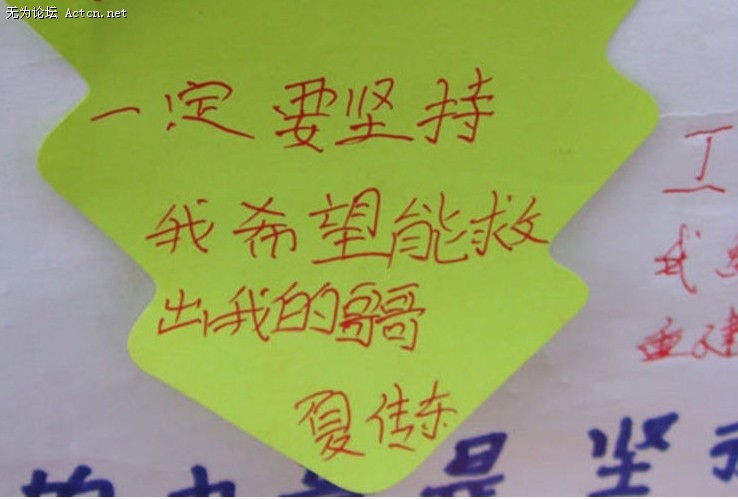 无为论坛 Actcn.net
一定要坚持
我希望能救
出我的哥哥
夏传东
我
重建
是 坚